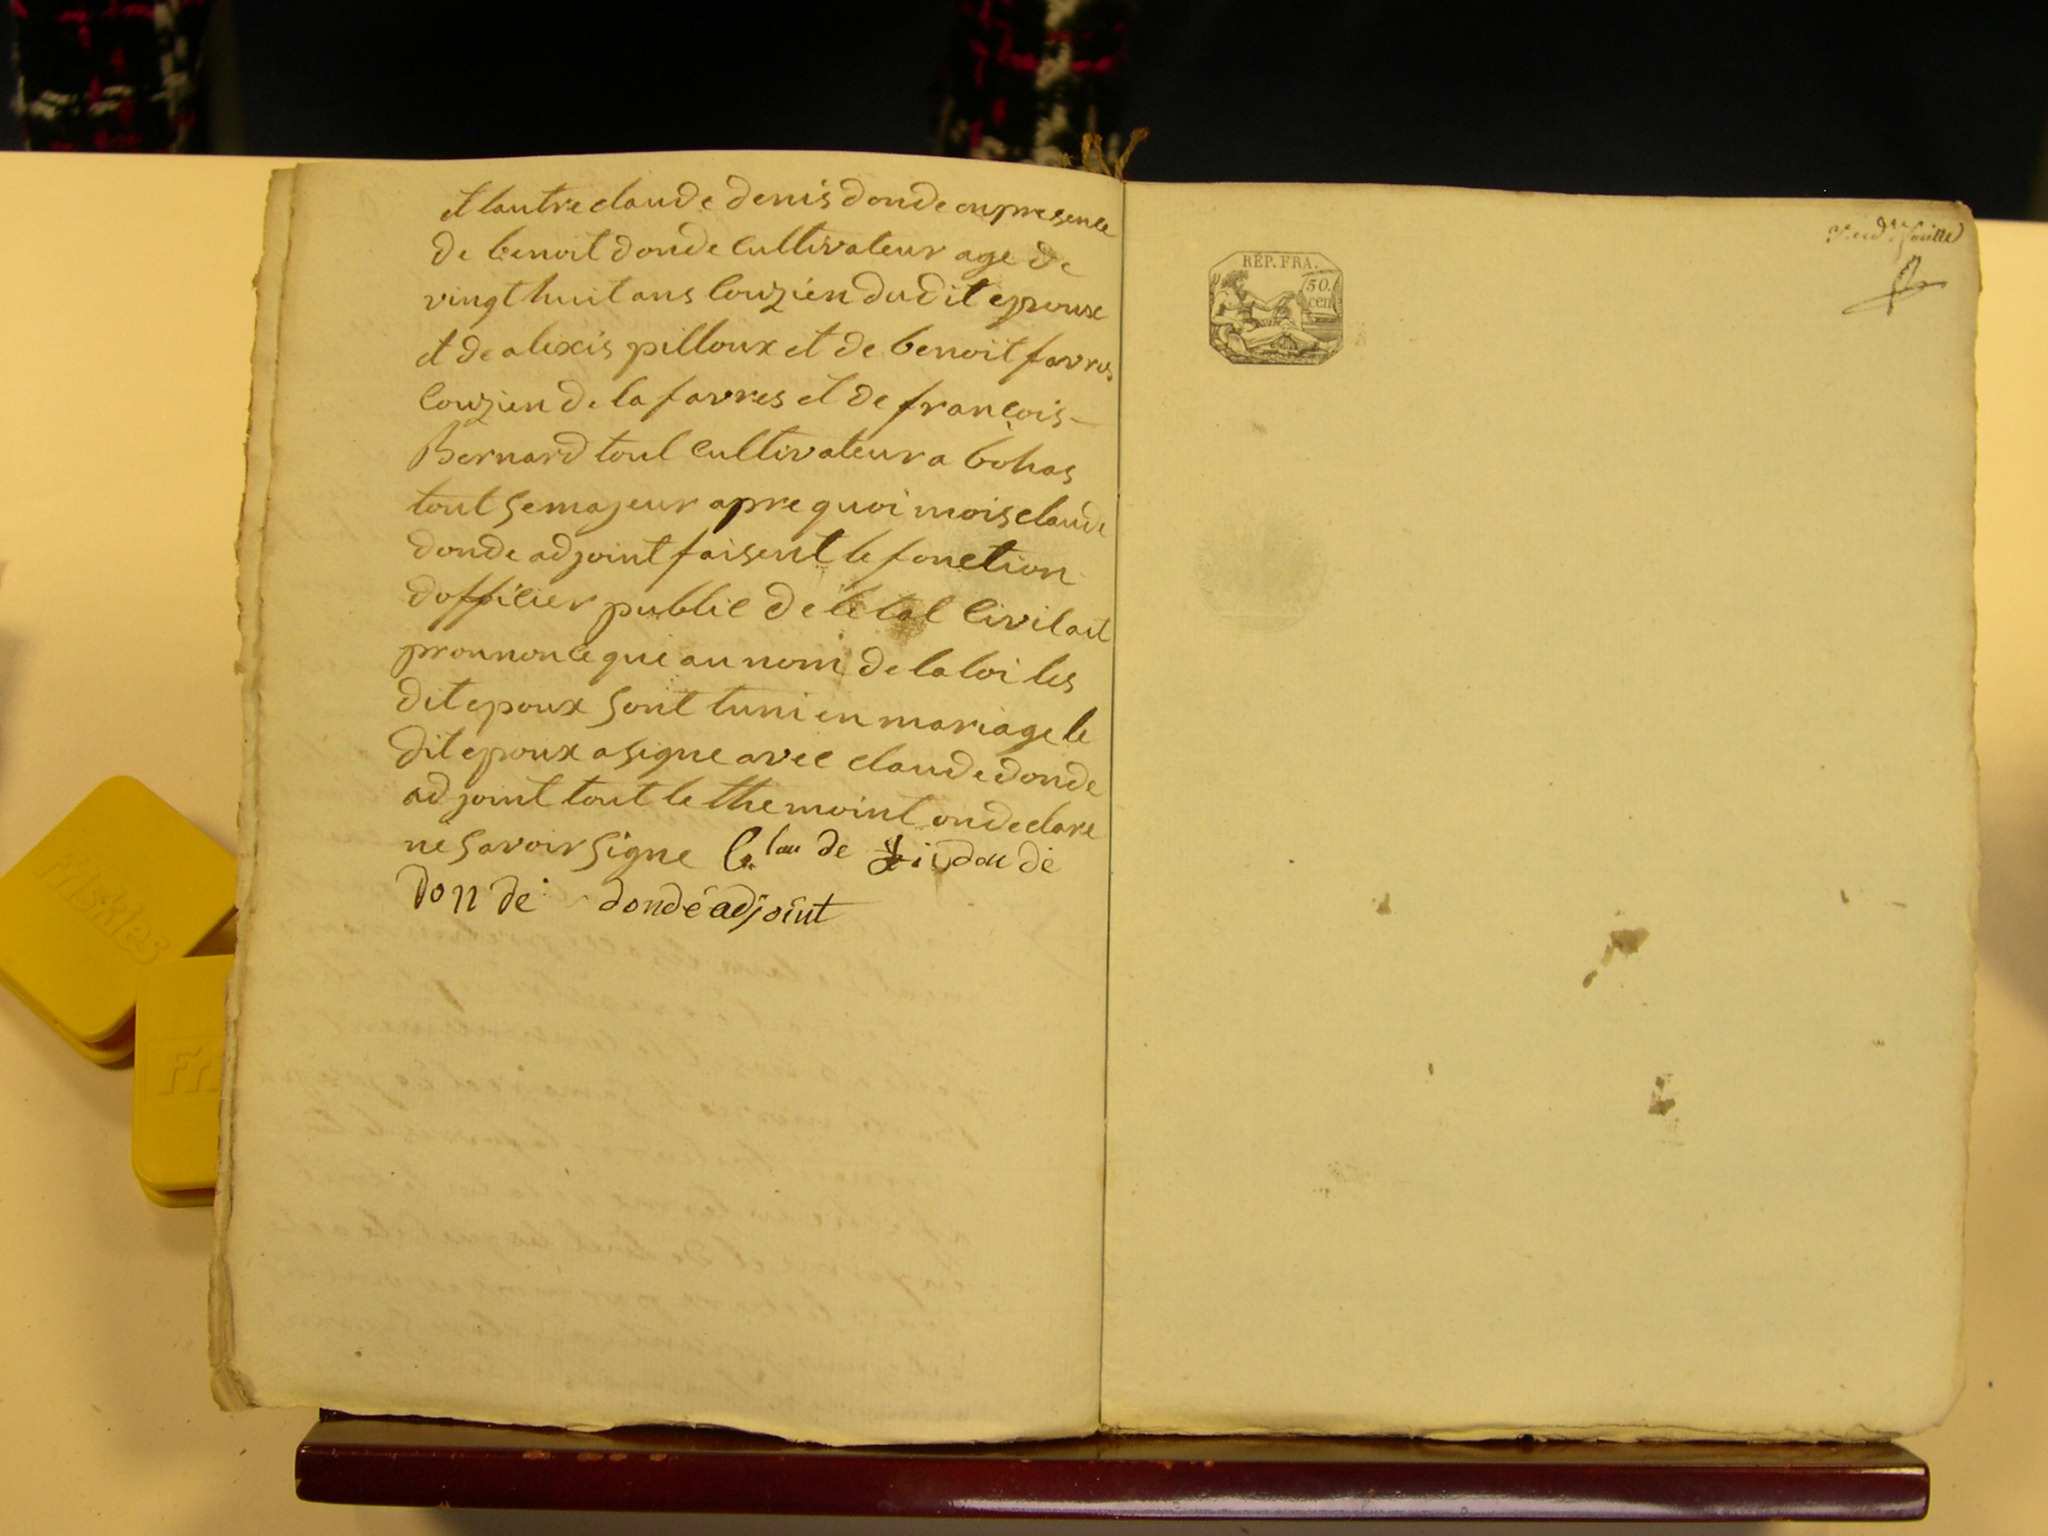 et lautre claude denis donde en presence
de benoit donde cultivateur age de
vingt huit ans couzien dudit epoux
et de alexis pilloux et de benoit favres
couzien de la favres et de francois
Bernard tout cultivateur a bohas
tout semajeur apre quoi mois claude
donde adjoint faisent le fonction
dofficier public de letat civil ait
pronnonce que au nom de la loi les
dit epoux sont tuni en mariage le
dit epoux a signe avec claude donde
adjoint tout le themoint on declare
ne savoir signe Clau de
don de donde adjoint
REP. FRA.
50.
cen
feuille
Friskies
Fri